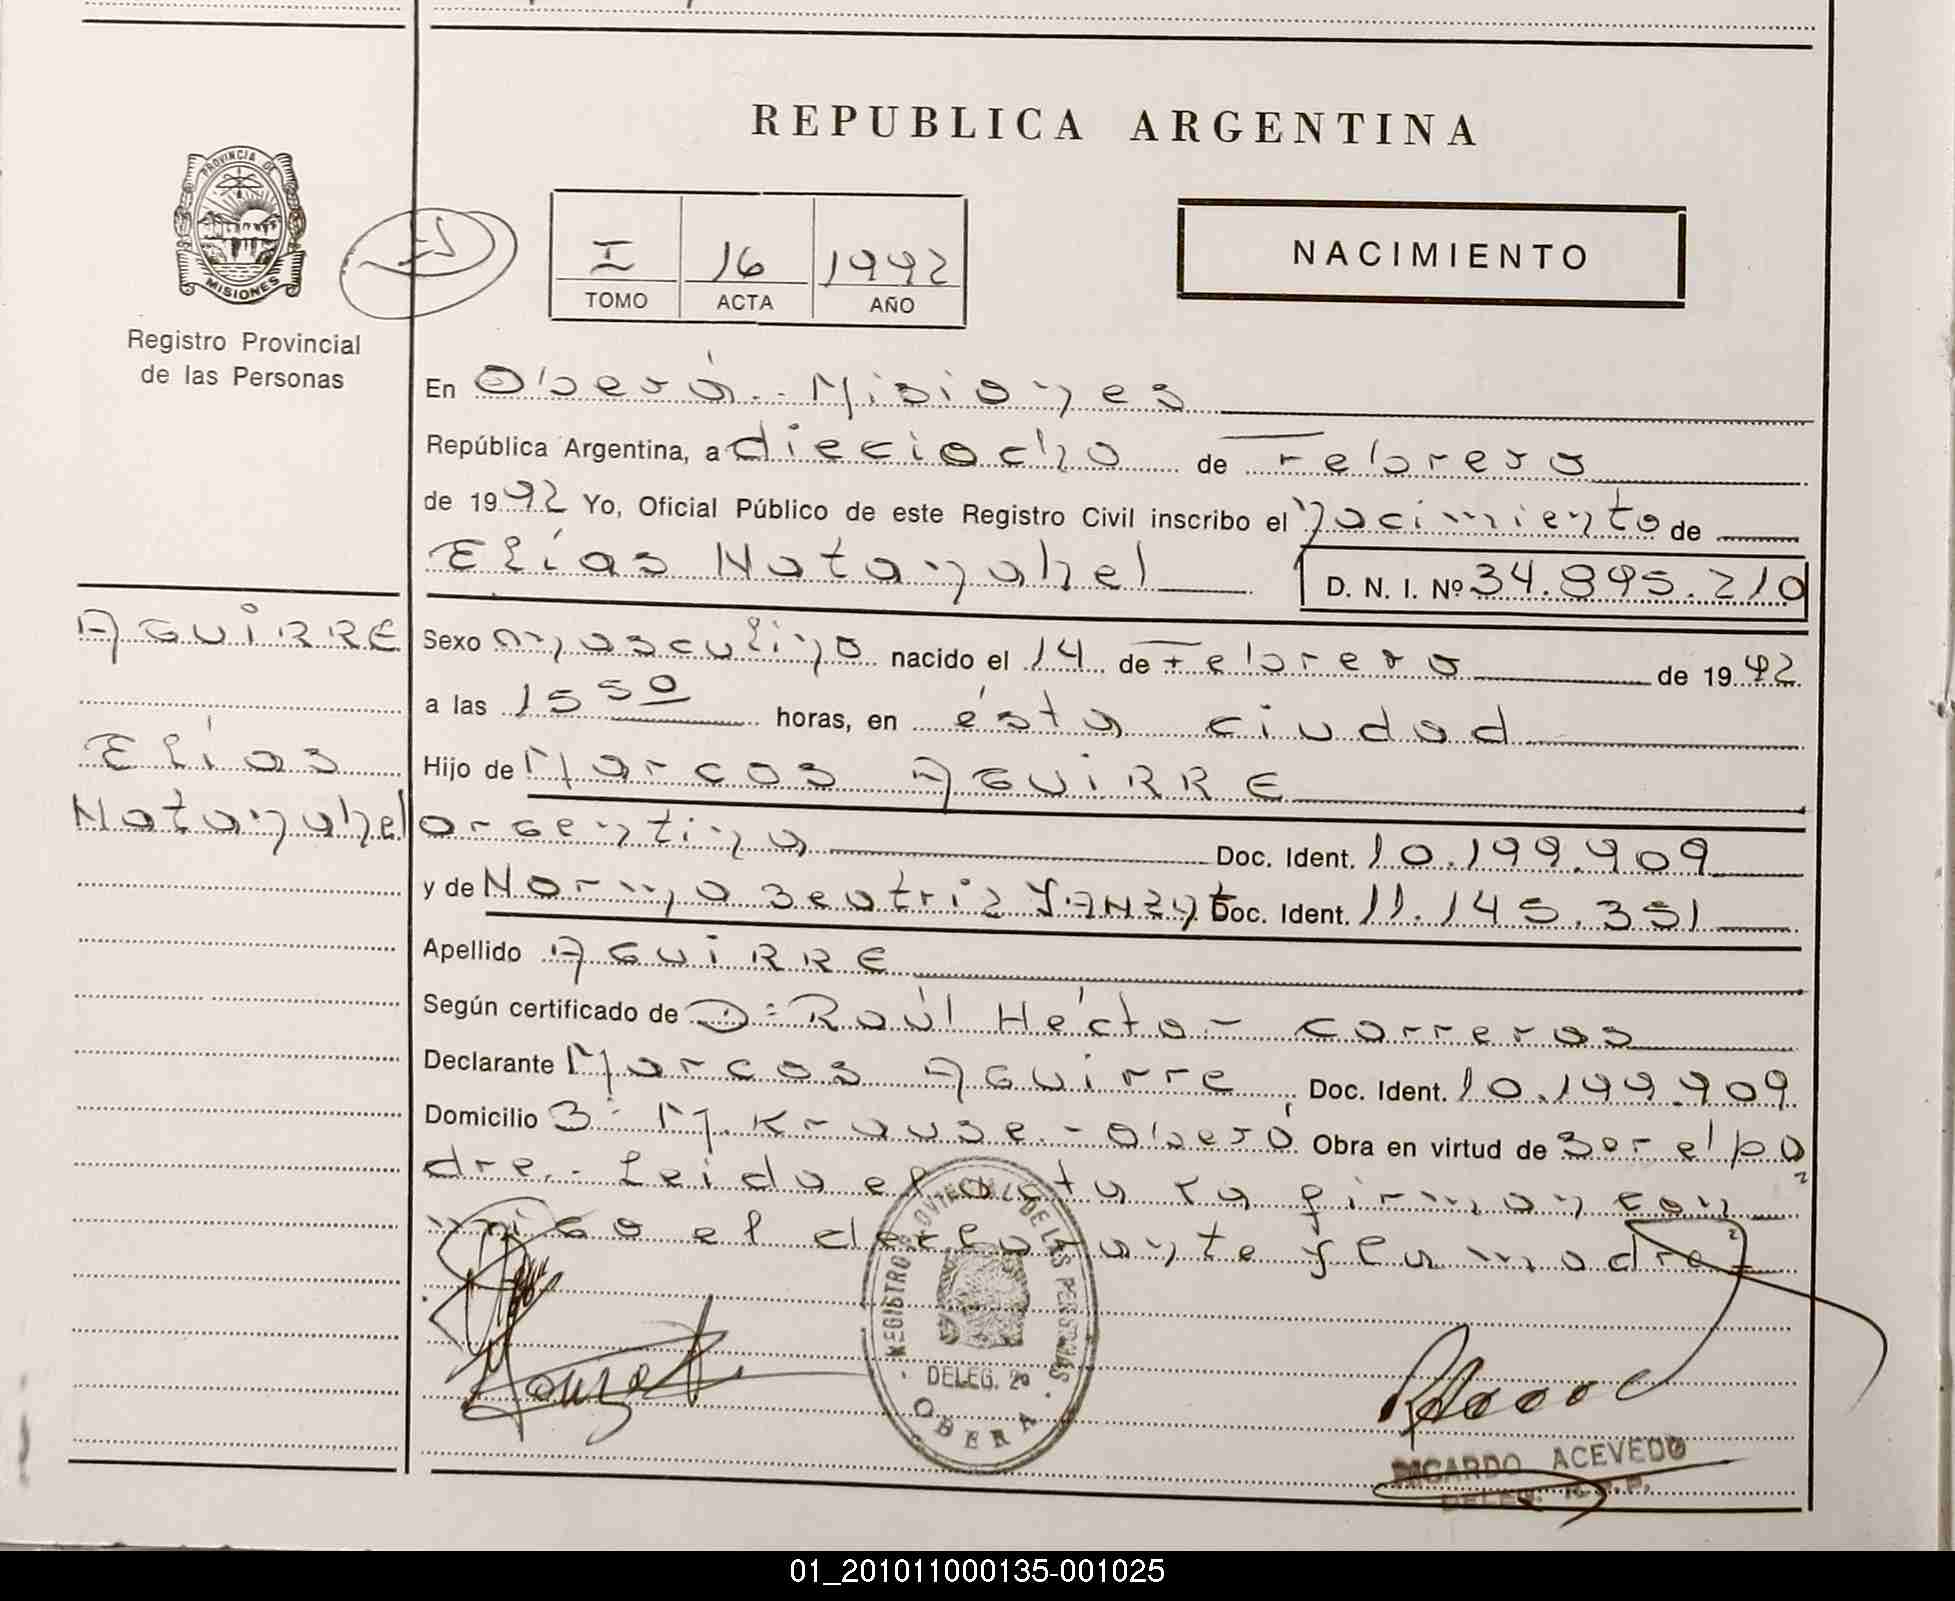 REPUBLICA ARGENTINA
PROVINCIA DE
MISIONES
Registro Provincial
de las Personas
I 16 1992
TOMO ACTA AÑO
NACIMIENTO
En Oberá - Misiones
República Argentina, a dieciocho de Febrero
de 1992 Yo, Oficial Público de este Registro Civil inscribo el nacimiento de
Elías Natanahel D. N. I. Nº 34.895.210
AGUIRRE
Elías
Natanahel
Sexo masculino nacido el 14 de Febrero de 1992
a las 15 50 horas, en ésta ciudad
Hijo de Marcos AGUIRRE
argentino Doc. Ident. 10.199.909
y de Norma Beatriz Doc. Ident. 11.145.351
Apellido AGUIRRE
Según certificado de D: Raúl Héctor Correros
Declarante Marcos Aguirre Doc. Ident. 10.199.909
Domicilio B: M. Krause - Oberá Obra en virtud de ser el pa
dre.- Leída el acta la firman con
migo el declarante y la madre
REGISTRO PROVINCIAL DE LAS PERSONAS
DELEG. 2ª
OBERA
RICARDO ACEVEDO
DELEG. R.P.P.
01_201011000135-001025